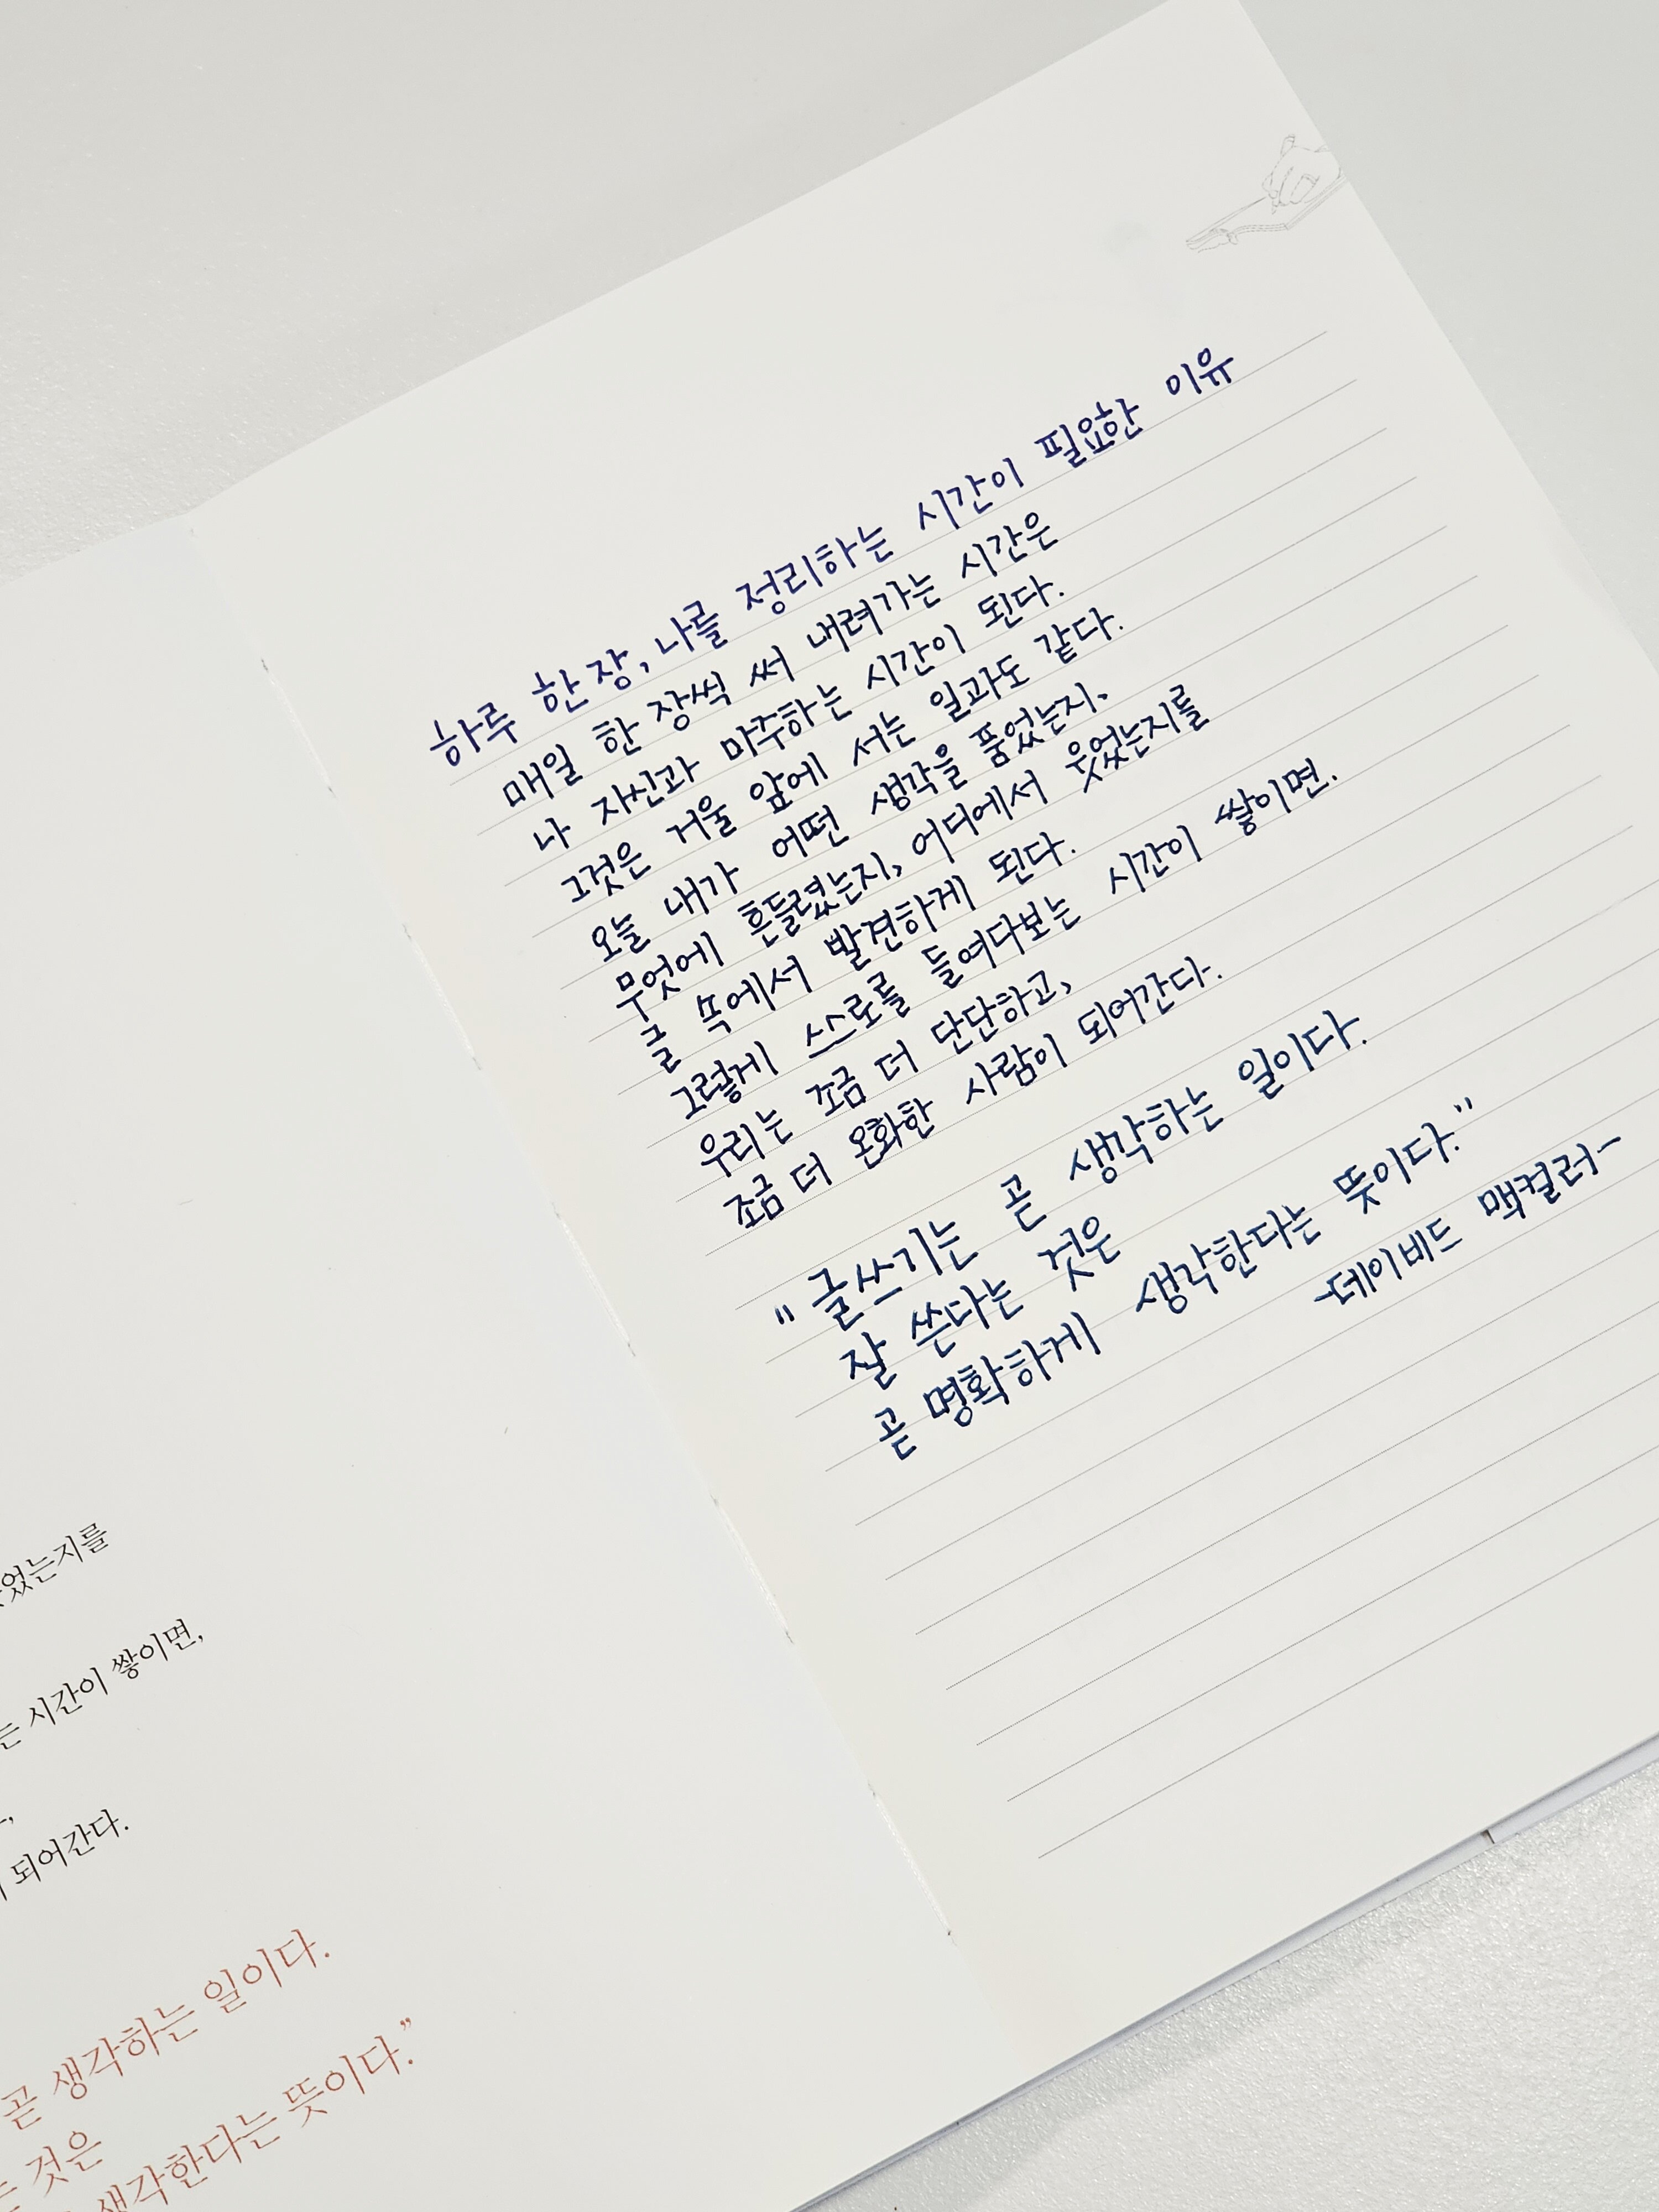 었는지를
는 시간이 쌓이면,
되어간다.
곧 생각하는 일이다.
는 것은
생각한다는 뜻이다.”
하루 한 장, 나를 정리하는 시간이 필요한 이유
매일 한 장씩 써 내려가는 시간은
나 자신과 마주하는 시간이 된다.
그것은 거울 앞에 서는 일과도 같다.
오늘 내가 어떤 생각을 품었는지,
무엇에 흔들렸는지, 어디에서 웃었는지를
글 속에서 발견하게 된다.
그렇게 스스로를 들여다보는 시간이 쌓이면.
우리는 조금 더 단단하고,
조금 더 온화한 사람이 되어간다.
"글쓰기는 곧 생각하는 일이다.
잘 쓴다는 것은
곧 명확하게 생각한다는 뜻이다."
-데이비드 맥컬러-